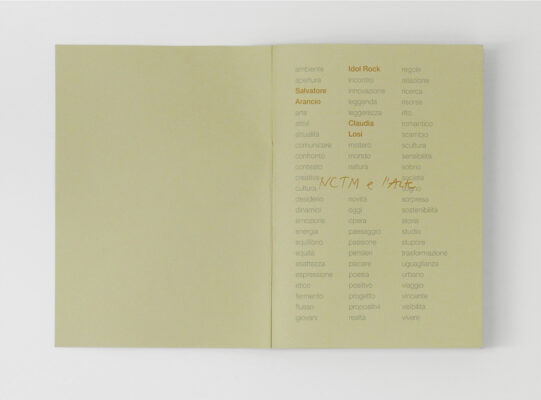 ambiente
apertura
Salvatore
Arancio
arte
attivi
attualità
comunicare
confronto
contesto
creatività
cultura
desiderio
dinamici
emozione
energia
equilibrio
equità
esattezza
espressione
etico
fermento
flusso
giovani
Idol Rock
incontro
innovazione
leggenda
leggerezza
Claudia
Losi
mistero
mondo
natura
NCTM e l'Arte
novità
oggi
opera
paesaggio
passione
pensieri
piacere
poesia
positivo
progetto
propositivi
realtà
regole
relazione
ricerca
risorse
rito
romantico
scambio
scultura
sensibilità
sobrio
società
sogno
sorpresa
sostenibilità
storia
studio
stupore
trasformazione
uguaglianza
urbano
viaggio
vincente
visibilità
vivere